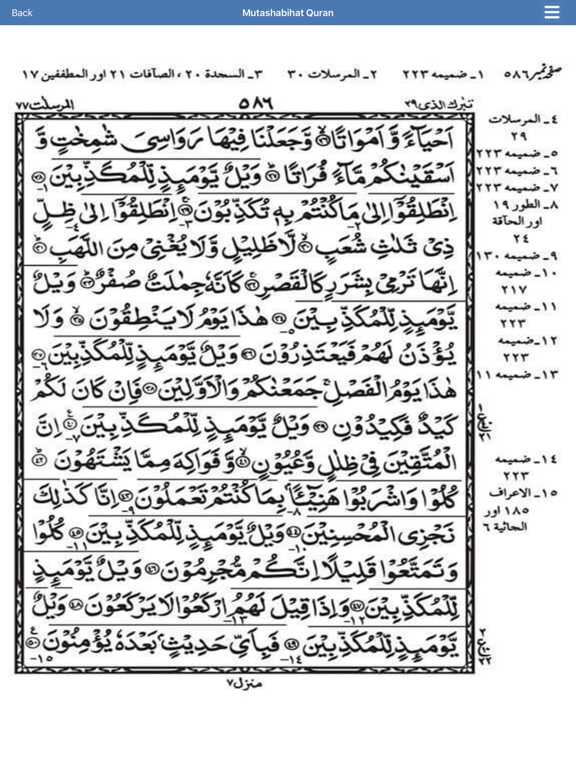 Back
Mutashabihat Quran
صفحہ نمبر ٥٨٦ ١۔ ضمیمہ ٢٢٣ ٢۔ المرسلات ٣٠ ٣۔ السجدة ٢٠، الصآفات ٢١ اور المطففین ١٧
تبرك الذی ٢٩ ٥٨٦ المرسلت ٧٧
اَحْيَآءً وَّ اَمْوَاتًا ۙ۲۶ وَّجَعَلْنَا فِيْهَا رَوَاسِيَ شٰمِخٰتٍ وَّ
اَسْقَيْنٰكُمْ مَّآءً فُرَاتًا ؕ۲۷ وَيْلٌ يَّوْمَىِٕذٍ لِّلْمُكَذِّبِيْنَ ۲۸
اِنْطَلِقُوْۤا اِلٰى مَا كُنْتُمْ بِهٖ تُكَذِّبُوْنَ ۚ۲۹ اِنْطَلِقُوْۤا اِلٰى ظِلٍّ
ذِيْ ثَلٰثِ شُعَبٍ ۙ۳۰ لَّا ظَلِيْلٍ وَّلَا يُغْنِيْ مِنَ اللَّهَبِ ؕ۳۱
اِنَّهَا تَرْمِيْ بِشَرَرٍ كَالْقَصْرِ ۚ۳۲ كَاَنَّهٗ جِمٰلَتٌ صُفْرٌ ؕ۳۳ وَيْلٌ
يَّوْمَىِٕذٍ لِّلْمُكَذِّبِيْنَ ۳۴ هٰذَا يَوْمُ لَا يَنْطِقُوْنَ ۙ۳۵ وَلَا
يُؤْذَنُ لَهُمْ فَيَعْتَذِرُوْنَ ۳۶ وَيْلٌ يَّوْمَىِٕذٍ لِّلْمُكَذِّبِيْنَ ۳۷
هٰذَا يَوْمُ الْفَصْلِ ۚ جَمَعْنٰكُمْ وَالْاَوَّلِيْنَ ۳۸ فَاِنْ كَانَ لَكُمْ
كَيْدٌ فَكِيْدُوْنِ ۳۹ وَيْلٌ يَّوْمَىِٕذٍ لِّلْمُكَذِّبِيْنَ ۴۰ اِنَّ
الْمُتَّقِيْنَ فِيْ ظِلٰلٍ وَّعُيُوْنٍ ۙ۴۱ وَّفَوَاكِهَ مِمَّا يَشْتَهُوْنَ ؕ۴۲
كُلُوْا وَاشْرَبُوْا هَنِيْٓـًٔۢا بِمَا كُنْتُمْ تَعْمَلُوْنَ ۴۳ اِنَّا كَذٰلِكَ
نَجْزِي الْمُحْسِنِيْنَ ۴۴ وَيْلٌ يَّوْمَىِٕذٍ لِّلْمُكَذِّبِيْنَ ۴۵ كُلُوْا
وَتَمَتَّعُوْا قَلِيْلًا اِنَّكُمْ مُّجْرِمُوْنَ ۴۶ وَيْلٌ يَّوْمَىِٕذٍ
لِّلْمُكَذِّبِيْنَ ۴۷ وَاِذَا قِيْلَ لَهُمُ ارْكَعُوْا لَا يَرْكَعُوْنَ ۴۸ وَيْلٌ
يَّوْمَىِٕذٍ لِّلْمُكَذِّبِيْنَ ۴۹ فَبِاَيِّ حَدِيْثٍۭ بَعْدَهٗ يُؤْمِنُوْنَ ۵۰
منزل ٧
٤۔ المرسلات
٢٩
٥۔ ضمیمہ ٢٢٣
٦۔ ضمیمہ ٢٢٣
٧۔ ضمیمہ ٢٢٣
٨۔ الطور ١٩
اور الحآقة
٢٤
٩۔ ضمیمہ ١٣٠
١٠۔ ضمیمہ
٢١٧
١١۔ ضمیمہ
٢٢٣
١٢۔ ضمیمہ
٢٢٣
١٣۔ ضمیمہ ١١
١٤۔ ضمیمہ
٢٢٣
١٥۔ الاعراف
١٨٥ اور
الجاثیة ٦